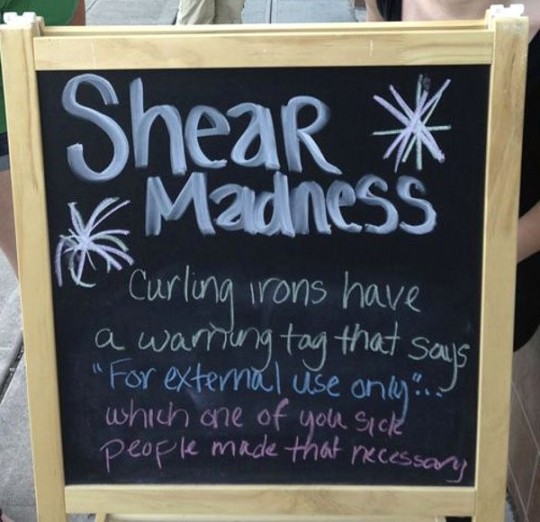 Shear
Madness
Curling irons have
a warning tag that says
"For external use only"...
which one of you sick
people made that necessary